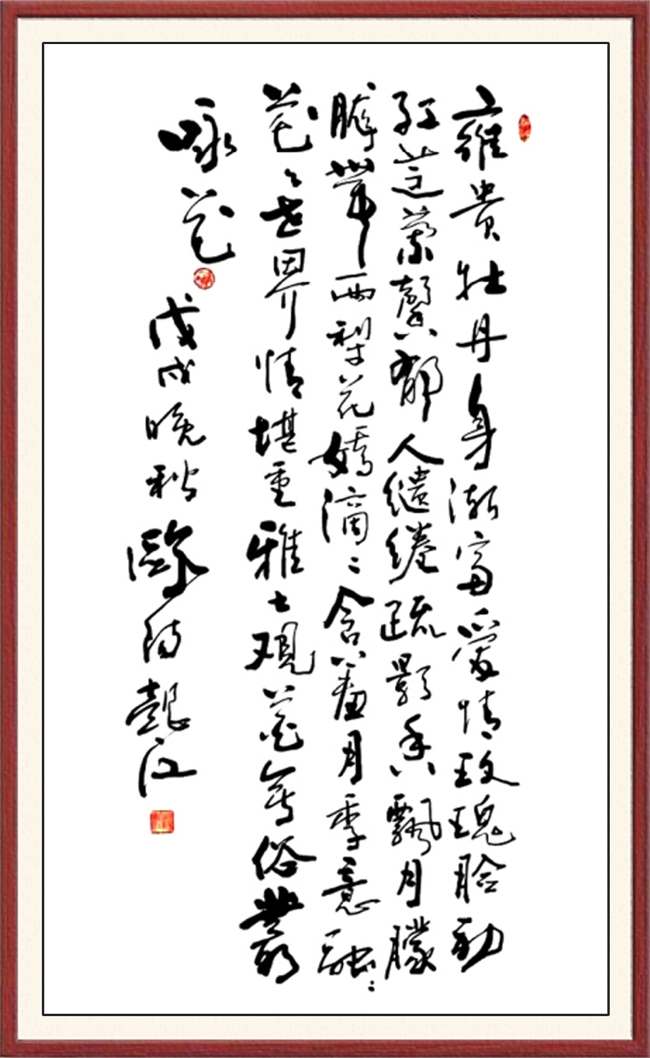 雍贵牡丹身渐富爱情玫瑰脸動
红芝蘭馨郁人缱绻疏影香飘月朦
胧带雨梨花嫣滴〻含羞月季意融〻
花〻世界情堪重雅士观花俗叢
咏花
戊戌晚秋歐陽江